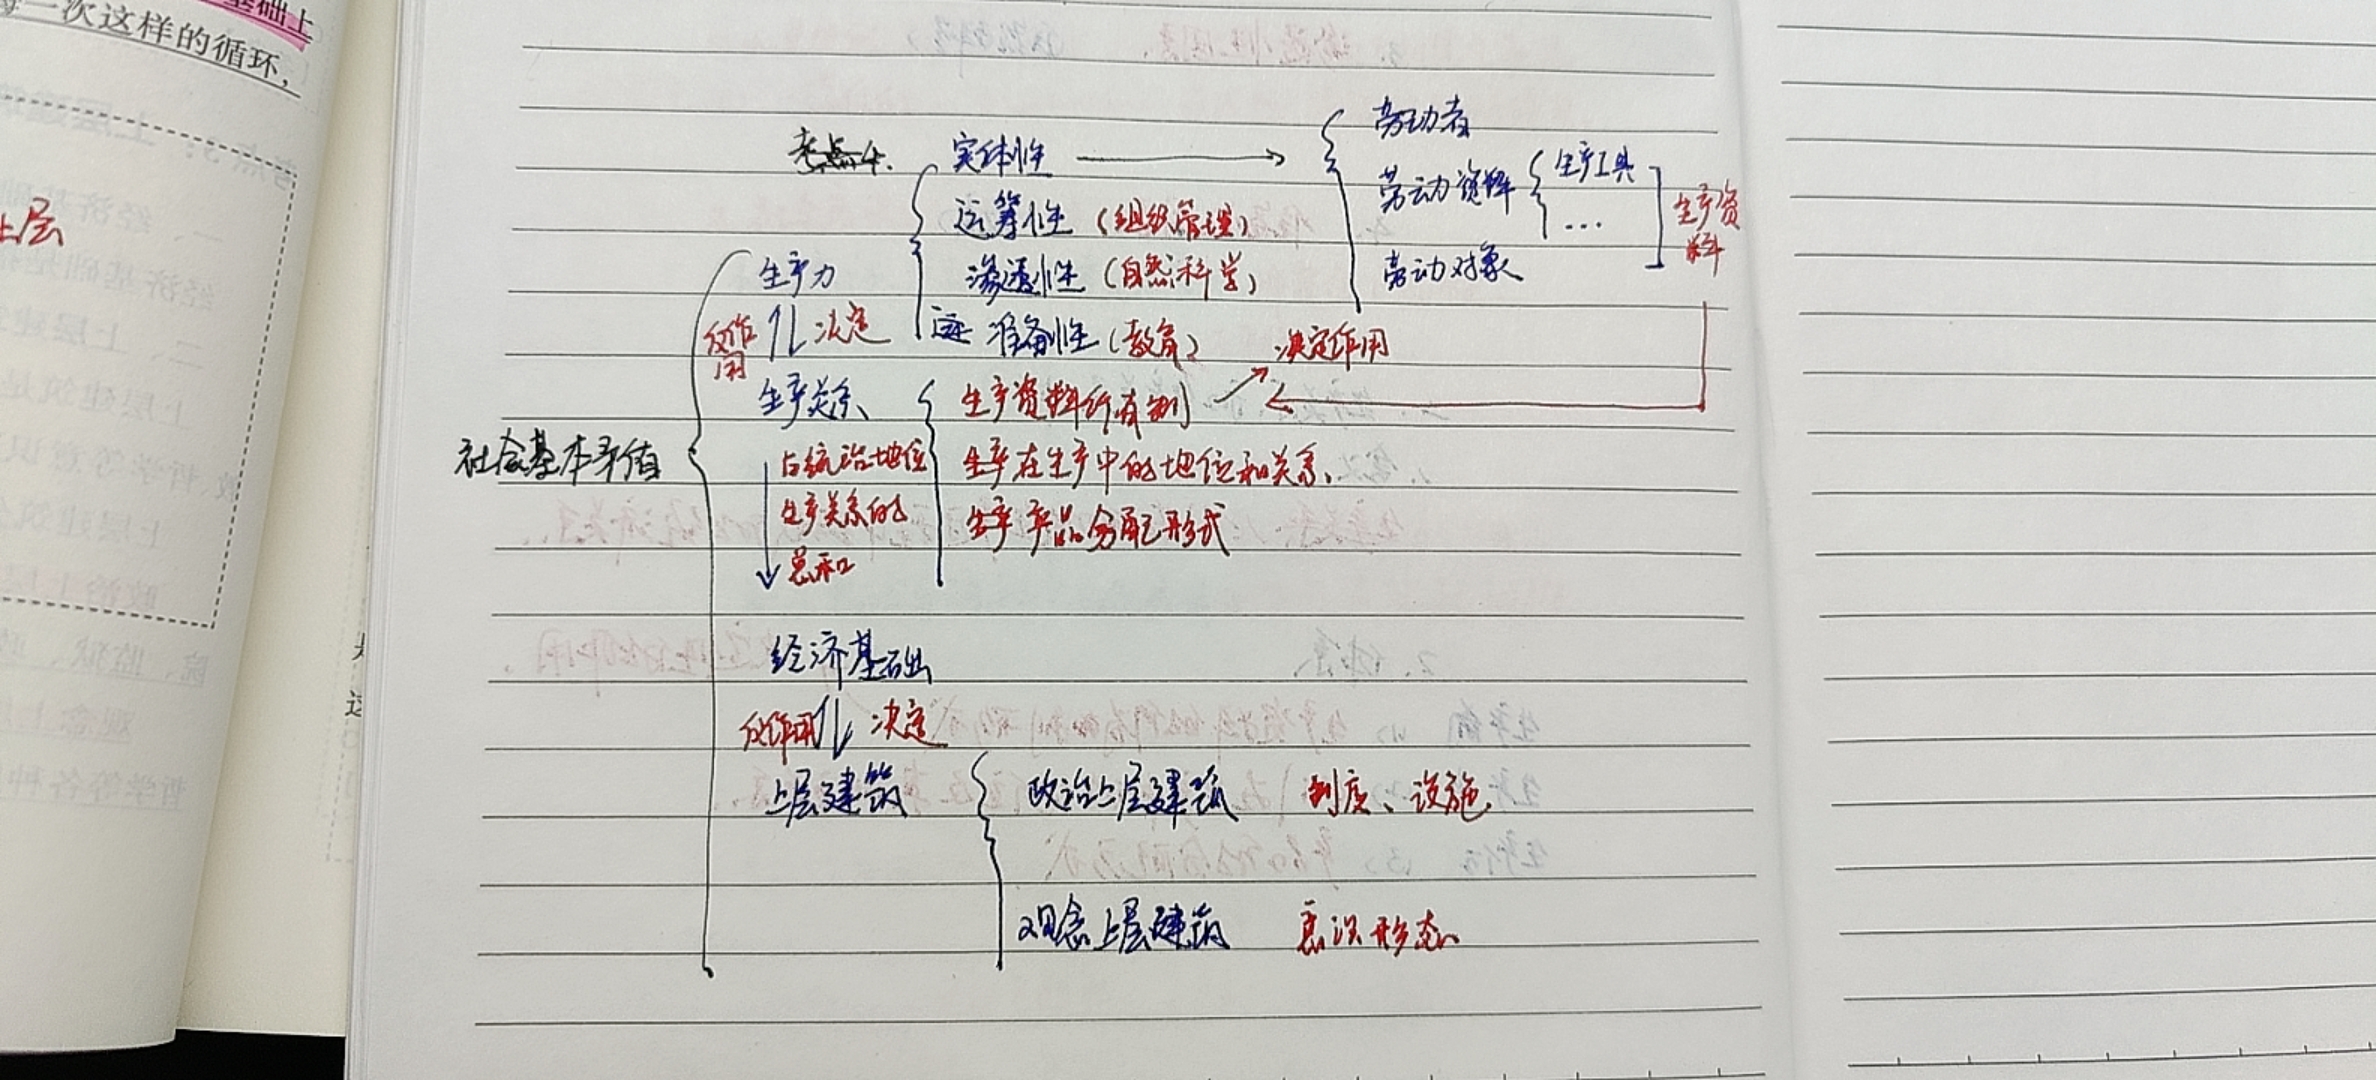 基础上
一次这样的循环，
上层
考点4.
实体性
劳动者
劳动资料
生产工具
...
生产资料
劳动对象
运筹性（组织管理）
渗透性（自然科学）
准备性（教育）
生产力
反作用
决定
生产关系
决定作用
生产资料所有制
生产在生产中的地位和关系
生产产品分配形式
社会基本矛盾
占统治地位
生产关系的
总和
经济基础
反作用
决定
上层建筑
政治上层建筑 制度、设施
观念上层建筑 意识形态